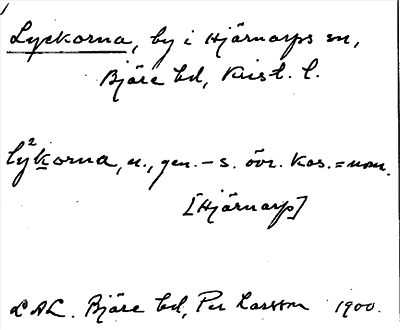 Lyckorna, by i Hjärnarps sn,
Bjäre hd, Krist. l.
ly²korna, n., gen. -s. övr. kas. = nom.
[Hjärnarp]
LAL. Bjäre hd, Per Larsson 1900.